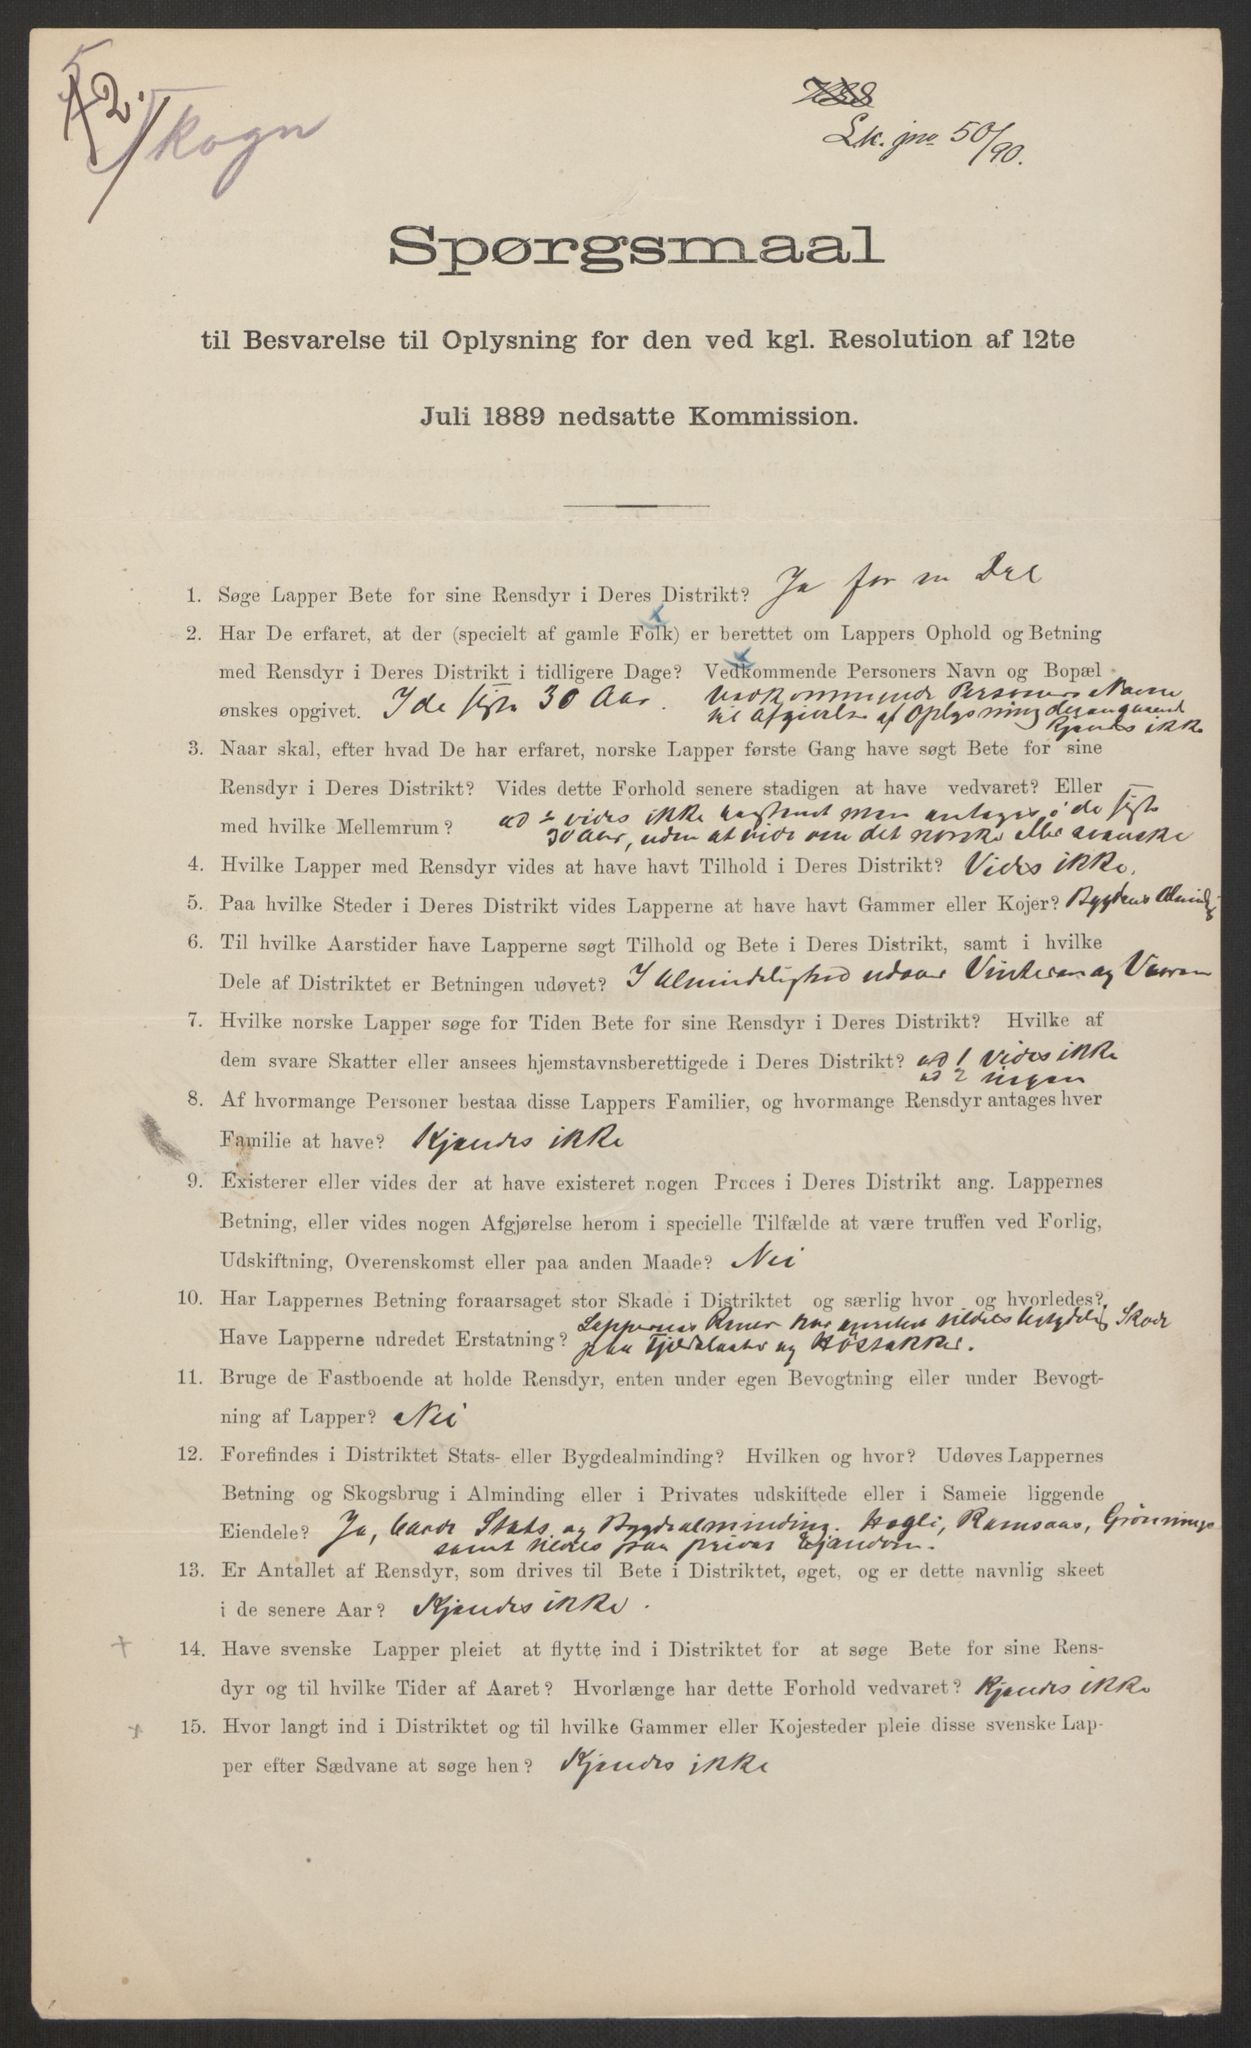 2.
Skogn
Lk. jno 50/90.
Spørgsmaal
til Besvarelse til Oplysning for den ved kgl. Resolution af 12te
Juli 1889 nedsatte Kommission.
1. Søge Lapper Bete for sine Rensdyr i Deres Distrikt? Ja for en Del
2. Har De erfaret, at der (specielt af gamle Folk) er berettet om Lappers Ophold og Betning
med Rensdyr i Deres Distrikt i tidligere Dage? Vedkommende Personers Navn og Bopæl
ønskes opgivet. I de sidste 30 Aar. Vedkommende Personers Navne
til Afgivelse af Oplysning desangaaende
kjendes ikke
3. Naar skal, efter hvad De har erfaret, norske Lapper første Gang have søgt Bete for sine
Rensdyr i Deres Distrikt? Vides dette Forhold senere stadigen at have vedvaret? Eller
med hvilke Mellemrum? ad 2 vides ikke men antages i de sidste
30 Aar, uden at vide om det norske eller svenske
4. Hvilke Lapper med Rensdyr vides at have havt Tilhold i Deres Distrikt? Vides ikke.
5. Paa hvilke Steder i Deres Distrikt vides Lapperne at have havt Gammer eller Kojer? Bygdens Alminding
6. Til hvilke Aarstider have Lapperne søgt Tilhold og Bete i Deres Distrikt, samt i hvilke
Dele af Distriktet er Betningen udøvet? I Almindelighed udover Vinteren og Vaaren
7. Hvilke norske Lapper søge for Tiden Bete for sine Rensdyr i Deres Distrikt? Hvilke af
dem svare Skatter eller ansees hjemstavnsberettigede i Deres Distrikt? ad 1 vides ikke
ad 2 ingen
8. Af hvormange Personer bestaa disse Lappers Familier, og hvormange Rensdyr antages hver
Familie at have? Kjendes ikke
9. Existerer eller vides der at have existeret nogen Proces i Deres Distrikt ang. Lappernes
Betning, eller vides nogen Afgjørelse herom i specielle Tilfælde at være truffen ved Forlig,
Udskiftning, Overenskomst eller paa anden Maade? Nei
10. Har Lappernes Betning foraarsaget stor Skade i Distriktet og særlig hvor og hvorledes?
Have Lapperne udredet Erstatning? Lappernes Rener har tildels betydelig Skade
paa Fjeldslaatter og Høstakker.
11. Bruge de Fastboende at holde Rensdyr, enten under egen Bevogtning eller under Bevogt-
ning af Lapper? Nei
12. Forefindes i Distriktet Stats- eller Bygdealminding? Hvilken og hvor? Udøves Lappernes
Betning og Skogsbrug i Alminding eller i Privates udskiftede eller i Sameie liggende
Eiendele? Ja, baade Stats og Bygdealminding. Hogli, Ramsaas, Grønninge
samt tildels paa privat Ejendom.
13. Er Antallet af Rensdyr, som drives til Bete i Distriktet, øget, og er dette navnlig skeet
i de senere Aar? Kjendes ikke.
14. Have svenske Lapper pleiet at flytte ind i Distriktet for at søge Bete for sine Rens-
dyr og til hvilke Tider af Aaret? Hvorlænge har dette Forhold vedvaret? Kjendes ikke
15. Hvor langt ind i Distriktet og til hvilke Gammer eller Kojesteder pleie disse svenske Lap-
per efter Sædvane at søge hen? Kjendes ikke